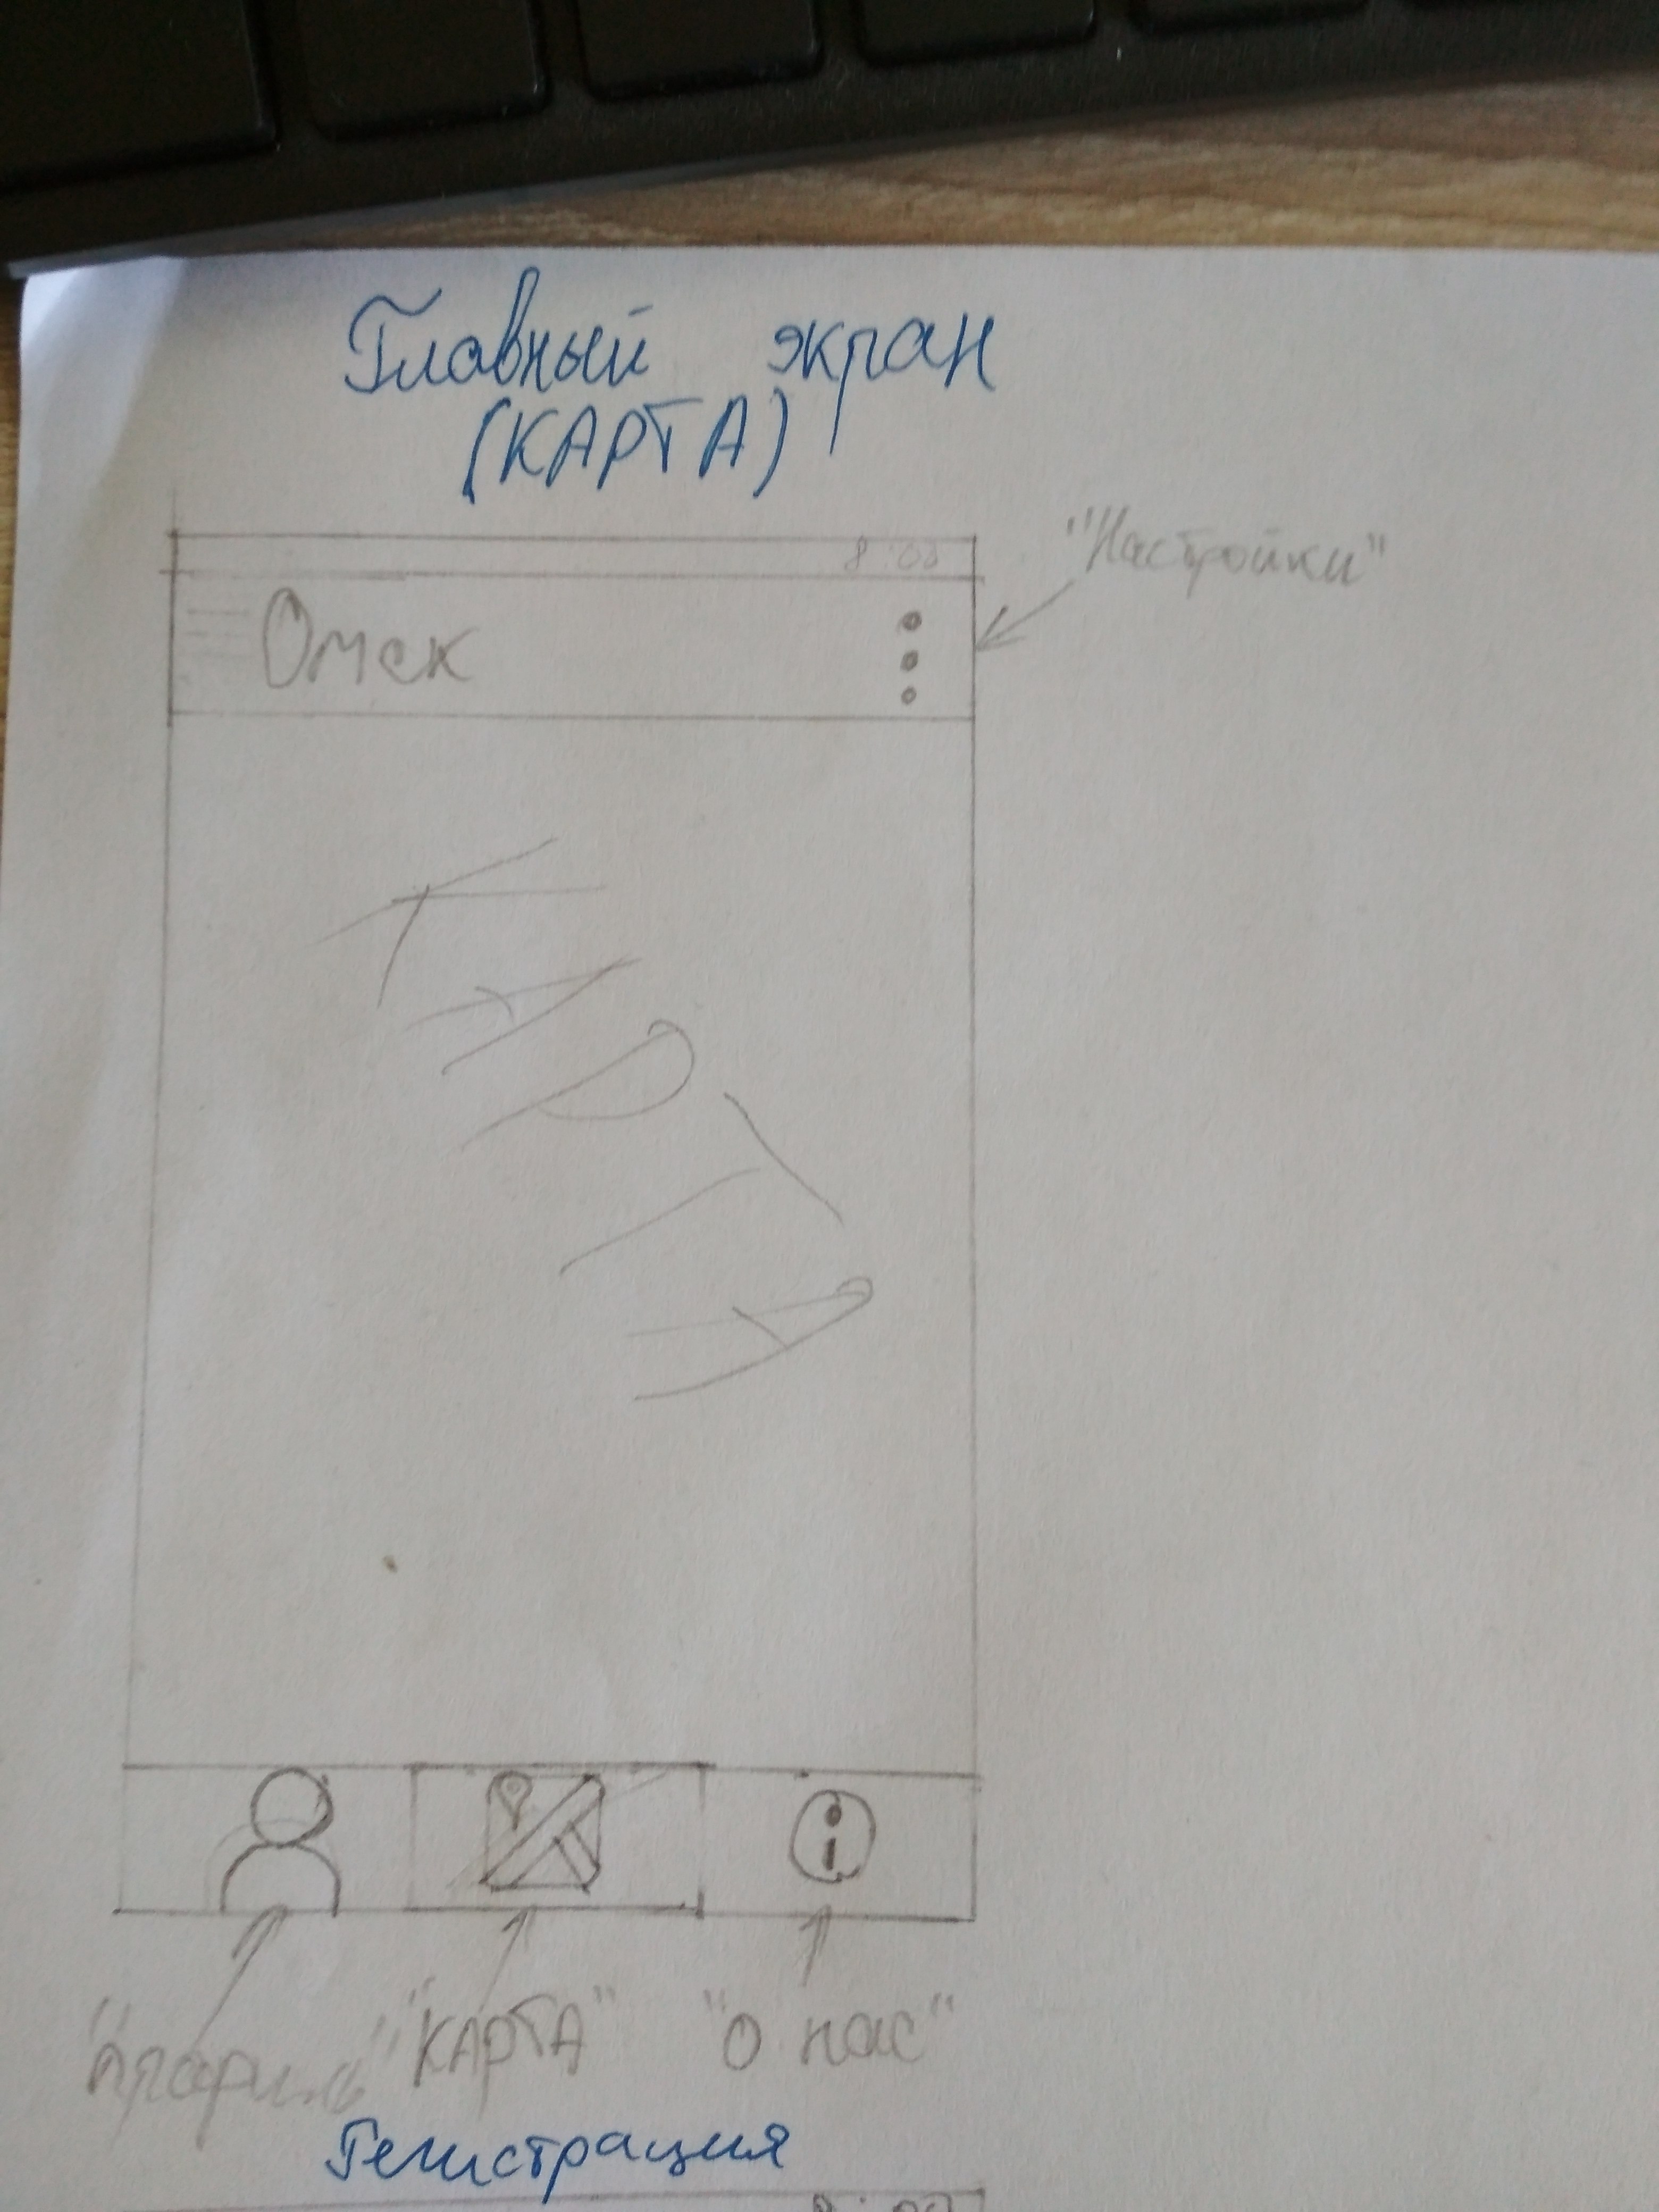 Главный экран
(КАРТА)
8:00
"Настройки"
Омск
КАРТА
"Профиль" "КАРТА" "О нас"
Регистрация